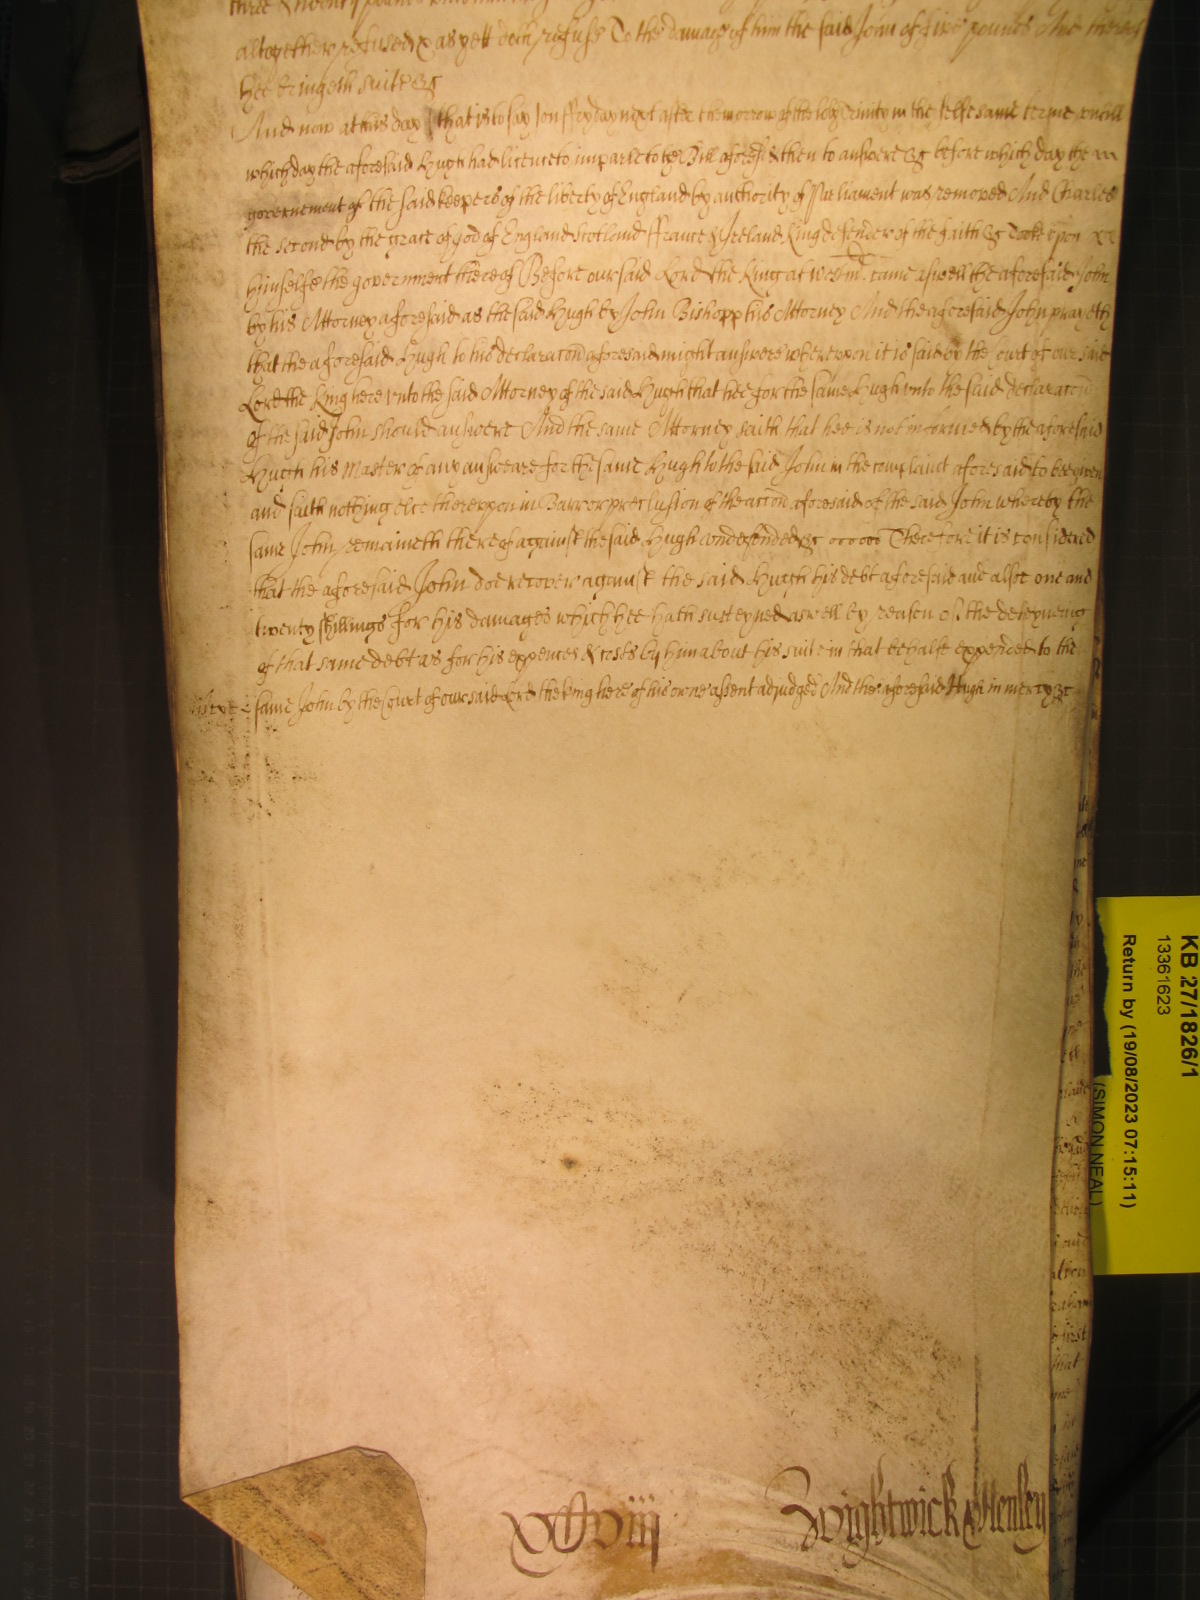 three & twenty pounds
altogether refused & as yett doth refuse To the damage of him the said John of five pounds And thereof
hee bringeth suite &c
And now at this day that is to say on ffryday next after the morrow of the holy Trinity in the selfe same terme untill
which day the aforesaid Hugh had licence to imparle to the Bill aforesd & then to answere &c before which day the
governement of the said keepers of the liberty of England by authority of Parliament was removed And Charles
the second by the grace of god of England Scotland ffrance & Ireland King defender of the faith &c Tooke upon
himselfe the government thereof Before our said Lord the King at Westm. came aswell the aforesaid John
by his Attorney aforesaid as the said Hugh by John Bishopp his Attorney And the aforesaid John prayeth
that the aforesaid Hugh to his declaracon aforesaid might answere whereupon it is said by the Court of our said
Lord the King here unto the said Attorney of the said Hugh that hee for the same Hugh unto the said declaracon
of the said John should answere And the same Attorney saith that hee is not informed by the aforesaid
Hugh his Master of any answeare for the same Hugh to the said John in the complaint aforesaid to bee given
and saith nothing else thereupon in Barr or preclusion of the accon aforesaid of the said John whereby the
same John remaineth thereof against the said Hugh undefended &c Therefore it is considered
that the aforesaid John doe recover against the said Hugh his debt aforesaid and alsoe one and
twenty shillings for his damages which hee hath susteyned aswell by reason of the deteyning
of that same debt as for his expences & costs by him about his suite in that behalfe expended to the
same John by the Court of our said Lord the King here of his owne assent adjudged And the aforesaid Hugh in mercy &c
xxviij
Wightwick & Henley
KB 27/1826/1
13361623
Return by (19/08/2023 07:15:11)
(SIMON NEAL)